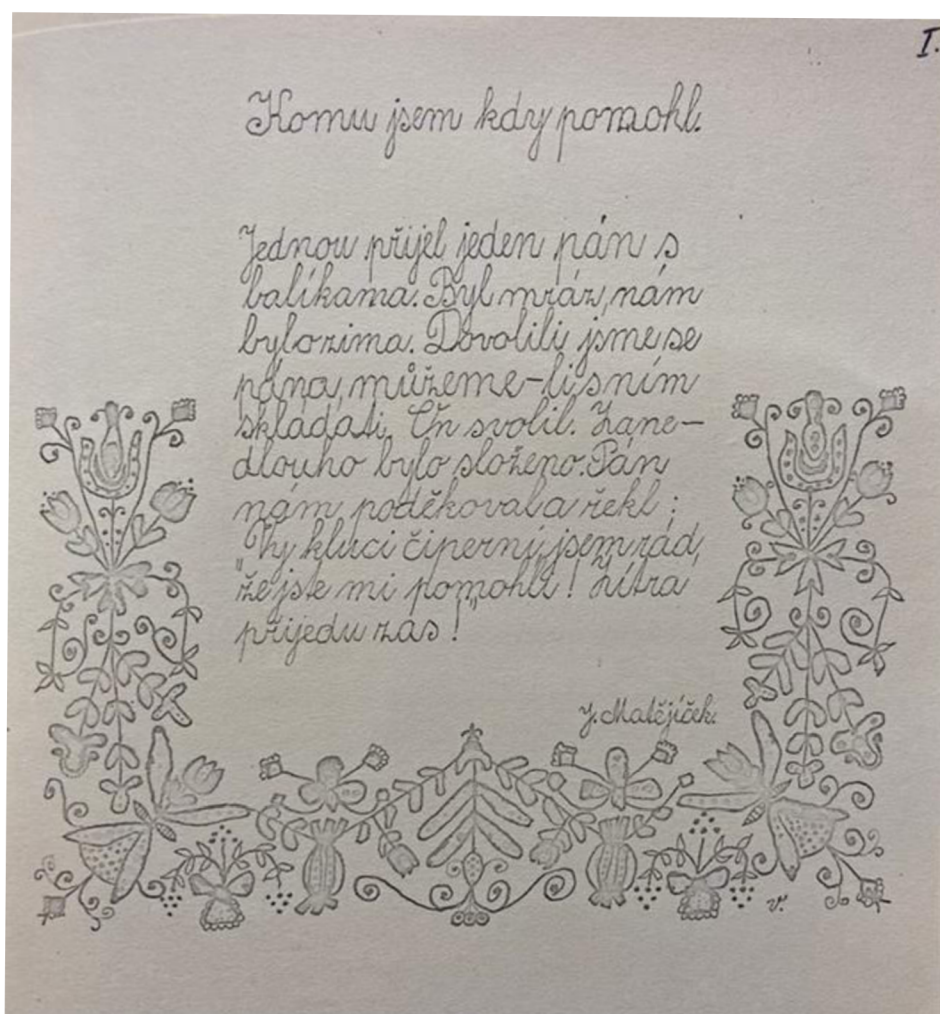 I.
Komu jsem kdy pomohl.
Jednou přijel jeden pán s
balíkama. Byl mráz, nám
bylo zima. Dovolili jsme se
pána, můžeme-li s ním
skládati. On svolil. Zane-
dlouho bylo složeno. Pán
nám poděkoval a řekl:
"Vy kluci čiperný, jsem rád,
že jste mi pomohli! Zítra
přijedu zas!"
J. Matějíček.
V.